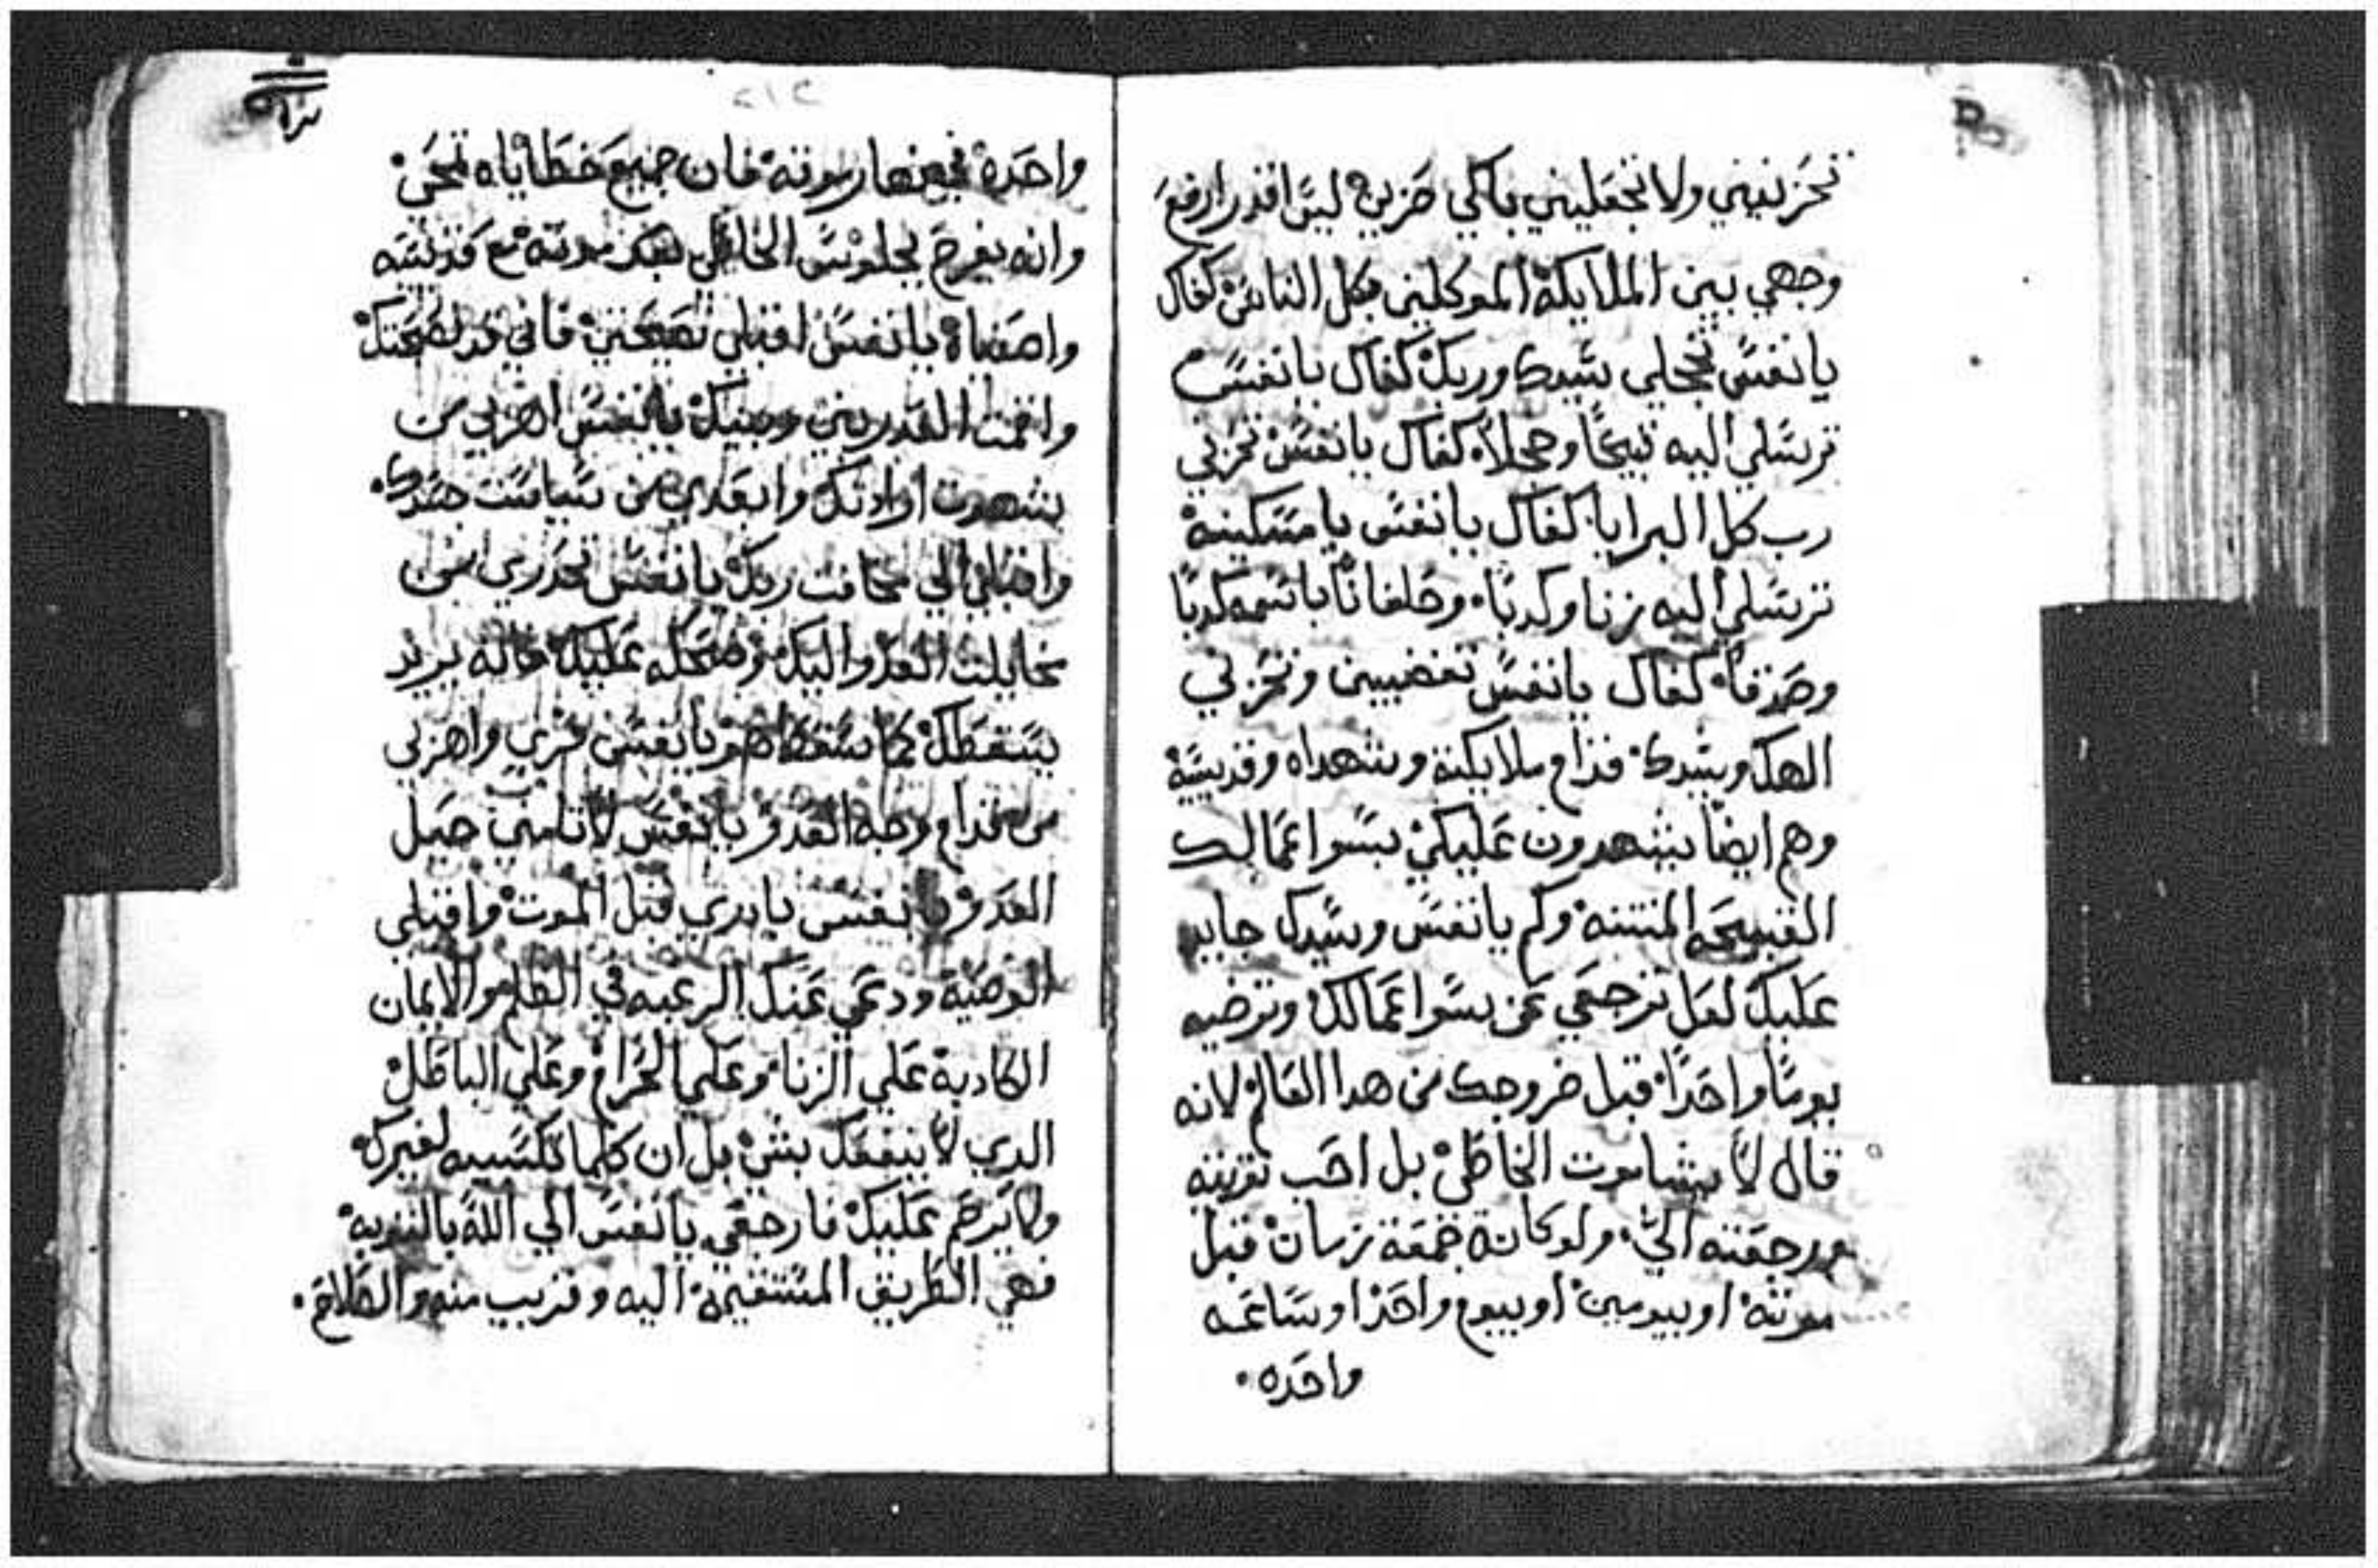 تحزنيني ولا تجعليني باكي حزين ليس اقدر ارفع
وجهي بين الملايكة الموكلين بكل الناس كفاك
يا نفس تخجلي سيدك وربك كفاك يا نفس
ترسلي اليه قبيحًا وخجلاً كفاك يا نفس تحزني
رب كل البرايا كفاك يا نفس يا مسكينة
ترسلي اليه زنا وكدبًا وحلفانًا باسمه كدبًا
كفاك يا نفس تغضبين وتحزني
الهك وسيدك قدام ملايكته وشهداه وقديسيه
وهم ايضًا يشهدون عليكي بسوا عمالك
القبيحه المنتنه وكم يا نفس وسيدك جايد
عليك لعل ترجعي عن سوا عمالك وترضيه
يومًا واحدًا قبل خروجك من هدا العالم لانه
قال لا يشا موت الخاطي بل احب توبته
ورجعته الي ولو كانة جمعة زمان قبل
موته او بيومين او بيوم واحدا وساعه
واحده
واحدة قبل موته فان جميع خطاياه تمحي
وانه يفرح بجلوس الخاطي بعد موته مع قديسيه
يا نفس اقبلي نصيحتي فاني قد نصحتك
واقمت العدر بيني وبينك يا نفس اهربي من
شهوت ارادتك وابعدي من سياست جسدك
واقبلي الي مخافت ربك يا نفس تحدري من
مخايلت العدو اليك وضحكه عليك فانه يريد
يسقطك كما سقط هو يا نفس فري واهربي
من قدام وجه العدو يا نفس لا تامني حيل
العدو يا نفس بادري قبل الموت واقبلي
الوصيه ودعي عنك الرغبه في الظلم والايمان
الكادبة علي الزنا وعلي الحرام وعلي الباطل
الدي لا ينفعك بشي بل ان كلما تكسبيه لغيرك
ولا يرحم عليك فارجعي يا نفس الي الله بالتوبه
فهي الطريق المستقيمة اليه وقريب منه والصلاح